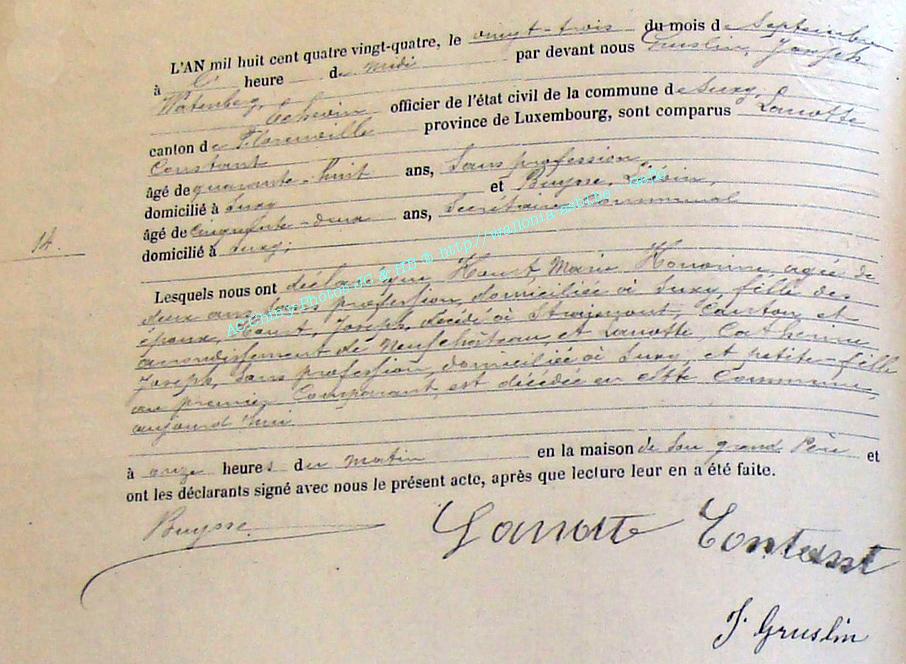 L'AN mil huit cent quatre vingt-quatre, le vingt-trois du mois de Septembre
à heure de midi par devant nous Gruslin, Joseph
Échevin officier de l'état civil de la commune de Suxy,
canton de Florenville province de Luxembourg, sont comparus Lanotte
Constant
âgé de quarante-huit ans, Sans profession,
domicilié à Suxy et Buysse,
âgé de cinquante-deux ans, Secrétaire Communal
domicilié à Suxy,
14.
Lesquels nous ont déclaré que Marie Honorine, agée de
deux ans, Sans profession, domiciliée à Suxy, fille des
époux, Joseph, décédé à Straimont, Canton et
arrondissement de Neufchâteau, et Lanotte, Catherine
Joseph, Sans profession, domiciliée à Suxy et petite-fille
au premier Comparant, est décédée en cette Commune,
aujourd'hui
à onze heures du matin en la maison de Son grand Père et
ont les déclarants signé avec nous le présent acte, après que lecture leur en a été faite.
Buysse
Lanotte Constant
J. Gruslin